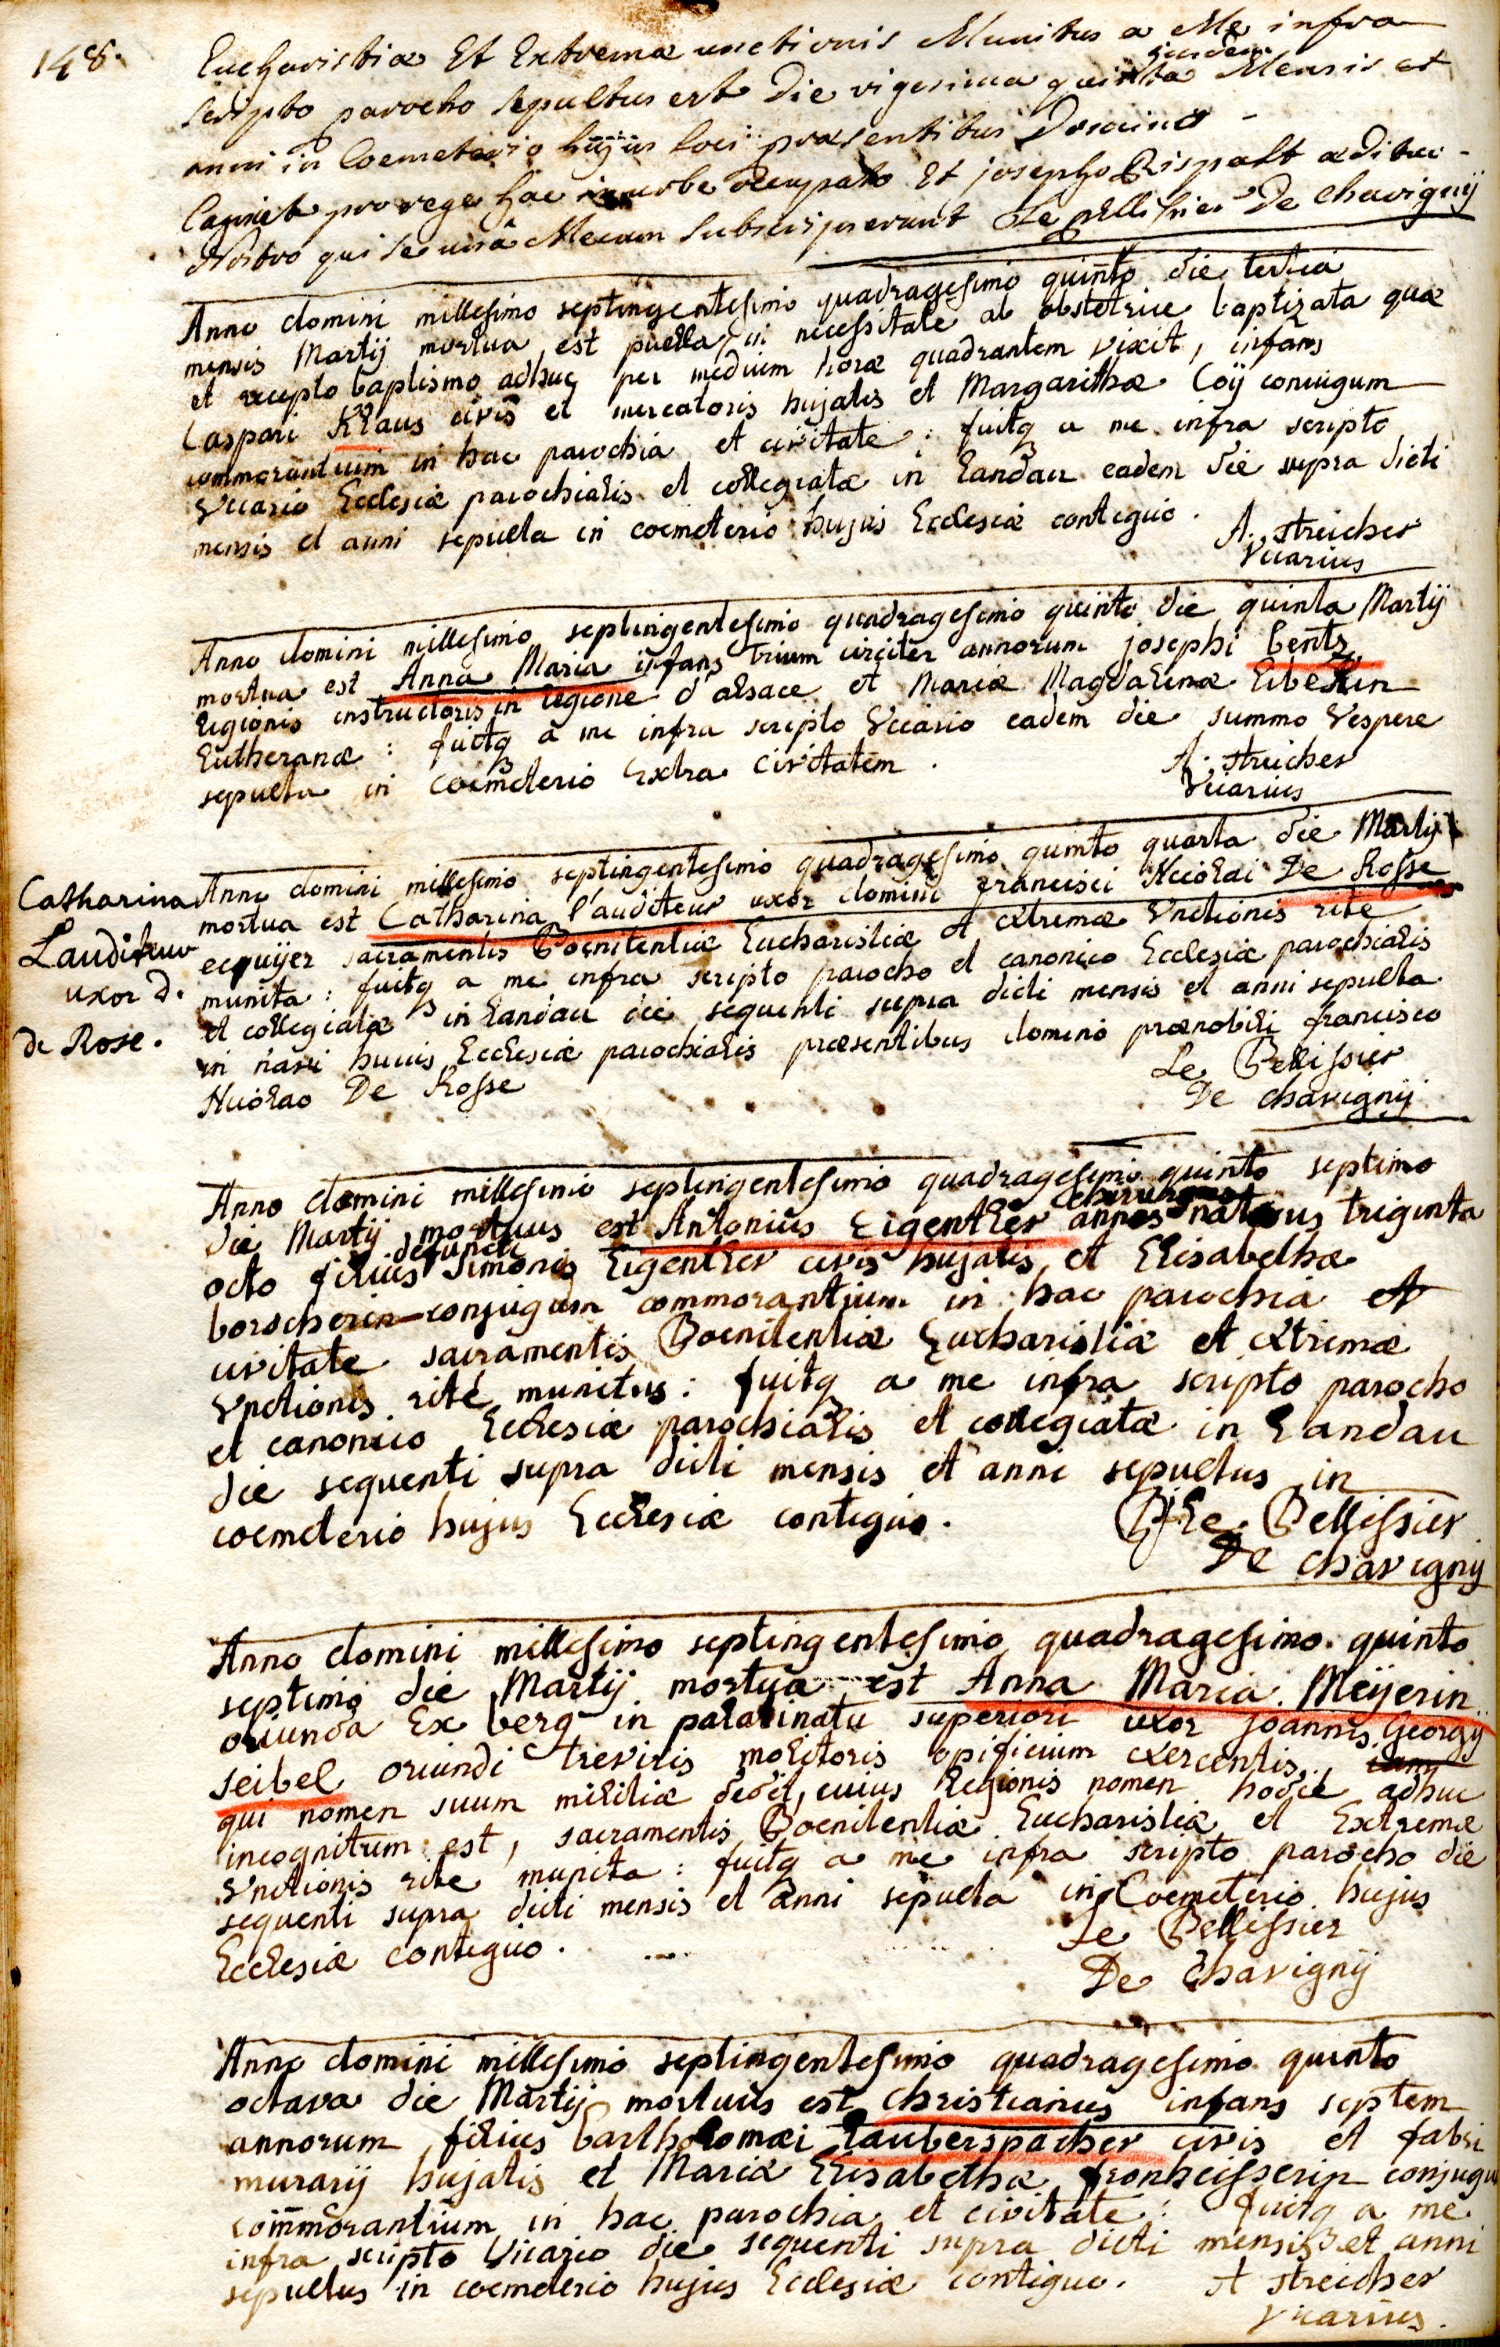 148.
Eucharistiæ Et Extremæ unctionis Munitus a Me infra
scripto parocho sepultus est Die vigesima quinta ejusdem Mensis et
anni in Coemeterio hujus loci præsentibus Domino
pro rege hac in urbe et josepho Rispalt ædituo
Nostro qui se una Mecum subscripserunt Le pellissier De chavignÿ
Anno domini millesimo septingentesimo quadragesimo quinto die tertia
mensis Martij mortua est puella, in necessitate ab obstetrice baptizata quæ
et recepto baptismo adhuc per medium horæ quadrantem vixit, infans
Caspari Klaus civis et mercatoris hujatis et Margarithæ Coÿ conjugum
commorantium in hac parochia et civitate : fuitq a me infra scripto
Vicario Ecclesiæ parochialis et collegiatæ in Landau eadem die supra dicti
mensis et anni sepulta in coemeterio hujus Ecclesiæ contiguo.
A. Streicher
Vicarius
Anno domini millesimo septingentesimo quadragesimo quinto die quinta Martÿ
mortua est Anna Maria infans trium circiter annorum josephi Centz
legionis instructoris in legione d'alsace et Mariæ Magdalenæ
Lutheranæ : fuitq a me infra scripto Vicario eadem die summo Vespere
sepulta in coemeterio Extra civitatem.
A. Streicher
Vicarius
Catharina
Lauditeur
uxor D.
de Rose.
Anno domini millesimo septingentesimo quadragesimo quinto quarta die Martij
mortua est Catharina l'auditeur uxor domini francisci Nicolai De Rosse
ecquijer sacramentis Poenitentiæ Eucharistiæ et extremæ Vnctionis rite
munita : fuitq a me infra scripto parocho et canonico Ecclesiæ parochialis
et collegiatæ in Landau die sequenti supra dicti mensis et anni sepulta
in navi hujus Ecclesiæ parochialis præsentibus domino prænobili francisco
Nicolao De Rosse
Le Pellissier
De chavignij
Anno domini millesimo septingentesimo quadragesimo quinto septimo
die Martij mortuus est Antonius Eigentler chirurgus annos natus triginta
octo filius defuncti Simonis Eigentler civis hujatis et Elisabethæ
borscherin conjugum commorantium in hac parochia et
civitate sacramentis Poenitentiæ Eucharistiæ et extremæ
Vnctionis rité munitus : fuitq a me infra scripto parocho
et canonico Ecclesiæ parochialis et collegiatæ in Landau
die sequenti supra dicti mensis et anni sepultus in
coemeterio hujus Ecclesiæ contiguo.
Le Pellissier
De chavignij
Anno domini millesimo septingentesimo quadragesimo quinto
septimo die Martij mortua est Anna Maria Meijerin
oriunda Ex berg in palatinatu superiori uxor joannis Georgÿ
seibel oriundi treviris molitoris opificium exercentis,
qui nomen suum militiæ dedit, cuius Legionis nomen hodie adhuc
incognitum est, sacramentis Poenitentiæ Eucharistiæ et Extremæ
Vnctionis rite munita : fuitq a me infra scripto parocho die
sequenti supra dicti mensis et anni sepulta in Coemeterio hujus
Ecclesiæ contiguo.
Le Pellissier
De Chavignij
Anno domini millesimo septingentesimo quadragesimo quinto
octava die Martij mortuus est christianus infans septem
annorum filius bartholomæi Lauberspacher civis et fabri
murarij hujatis et Mariæ Elisabethæ fronheisserin conjugu
com̄morantium in hac parochia et civitate : fuitq a me
infra scripto Vicario die sequenti supra dicti mensis et anni
sepultus in coemeterio hujus Ecclesiæ contiguo.
A Streicher
Vicarius.